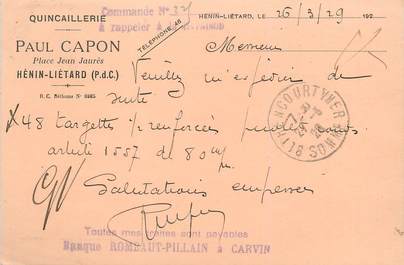 QUINCAILLERIE
PAUL CAPON
Place Jean Jaurès
HÉNIN-LIÉTARD (P.d.C.)
R. C. Béthune N°
TÉLÉPHONE 46
Commande N° 32
à rappeler à
HÉNIN-LIÉTARD, LE 26/3/29 192
Messieurs
Veuillez m'expédier de
suite
48 targettes 1/2 renforcées
article 1557 de 80 m/m
Salutations empressées
Toutes mes traites sont payables
Banque ROMBAUT-PILLAIN à CARVIN